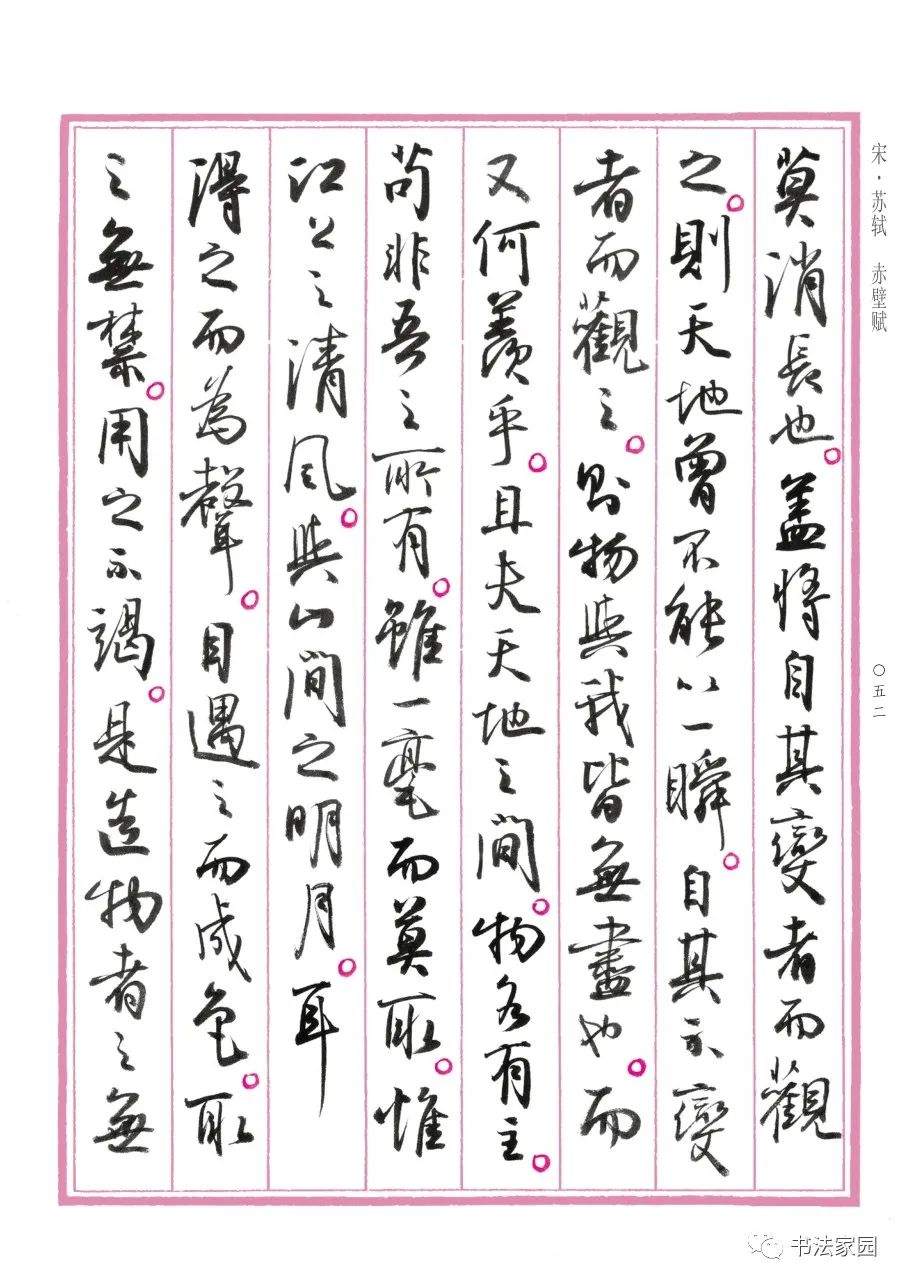 宋·苏轼 赤壁赋
莫消長也。盖將自其變者而觀
之。則天地曾不能以一瞬。自其不變
者而觀之。則物與我皆無盡也。而
又何羨乎。且夫天地之間。物各有主。
苟非吾之所有。雖一毫而莫取。惟
江上之清風。與山間之明月。耳
得之而為聲。目遇之而成色。取
之無禁。用之不竭。是造物者之無
〇五二
书法家园